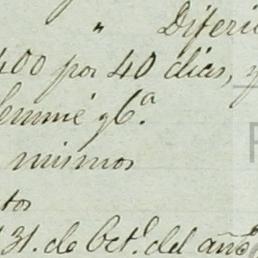 " Diferi
400 por 40 dias, y
Lemmé y Cª.
mismos
tos
31. de Octe. del año